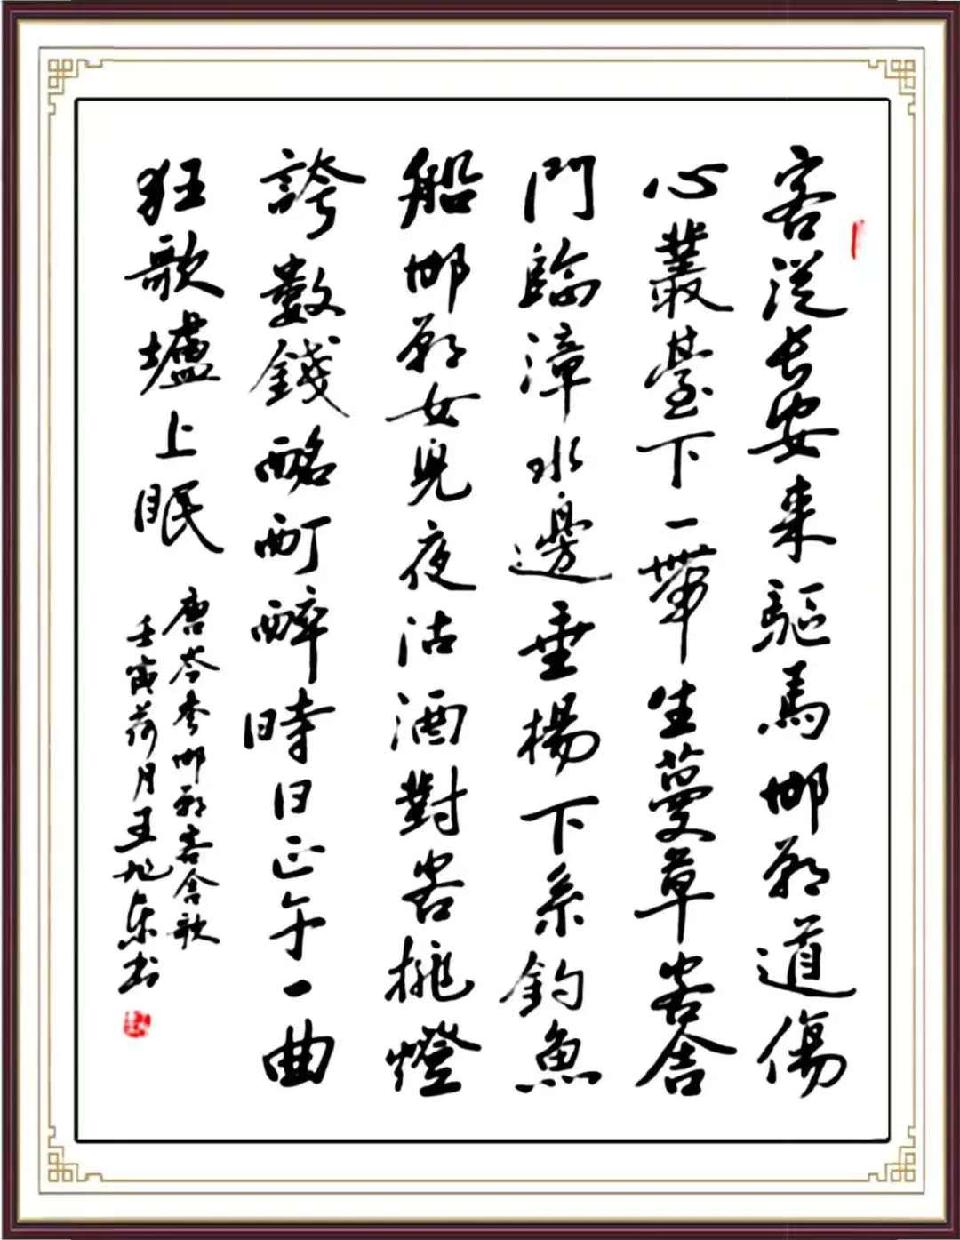 客從长安来驅馬邯鄲道傷
心叢臺下一帶生蔓草客舍
門臨漳水邊垂楊下系釣魚
船邯鄲女兒夜沽酒對客挑燈
誇數錢酩酊醉時日正午一曲
狂歌壚上眠
唐岑参邯鄲客舍歌
壬寅荷月王旭东书